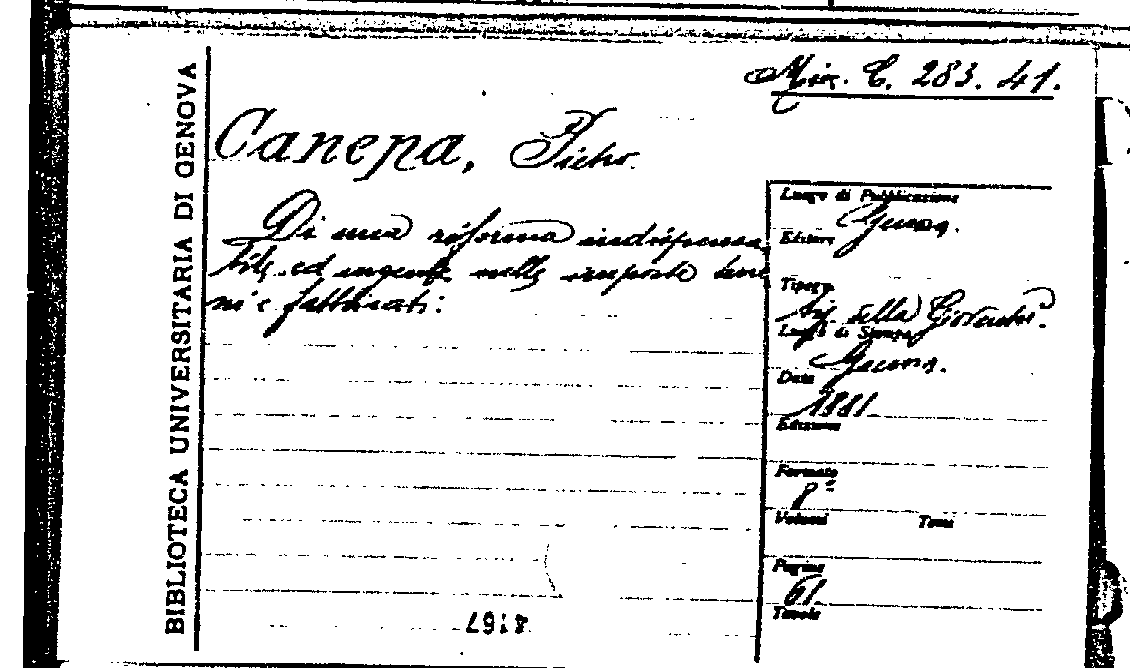 BIBLIOTECA UNIVERSITARIA DI GENOVA
Mis. C. 283. 41.
Canepa,
Di una riforma indispensa
bile ed urgente nelle imposte terre
ni e fabbricati:
Luogo di Pubblicazione
Genova.
Editore
Tipogr.
tip. della Gioventù.
Luogo di Stampa
Genova.
Data
1881
Edizione
Formato
8º
Volumi Tomi
Pagine
61
Tavole
4167